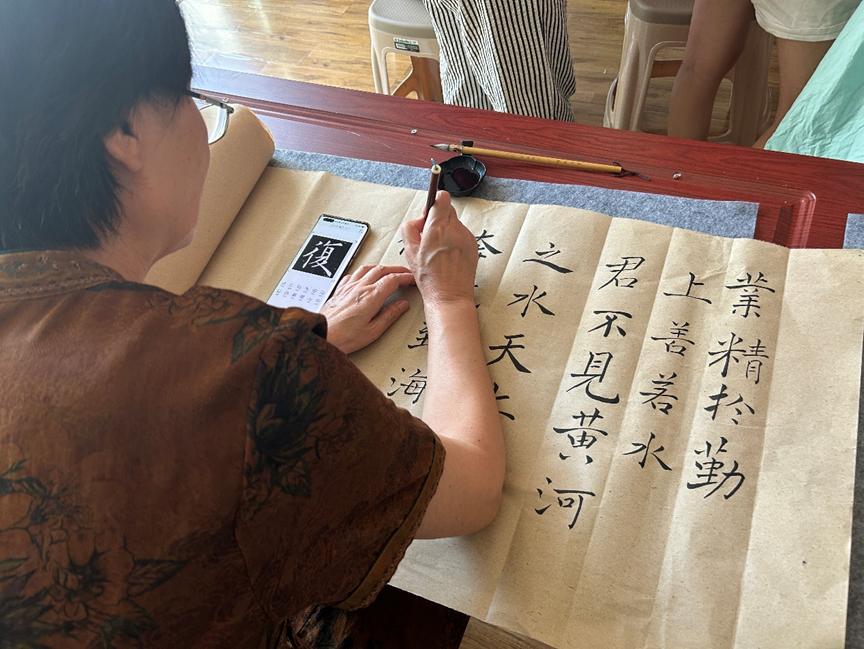 業精扵勤
上善若水
君不見黄河
之水天
奔到海
復